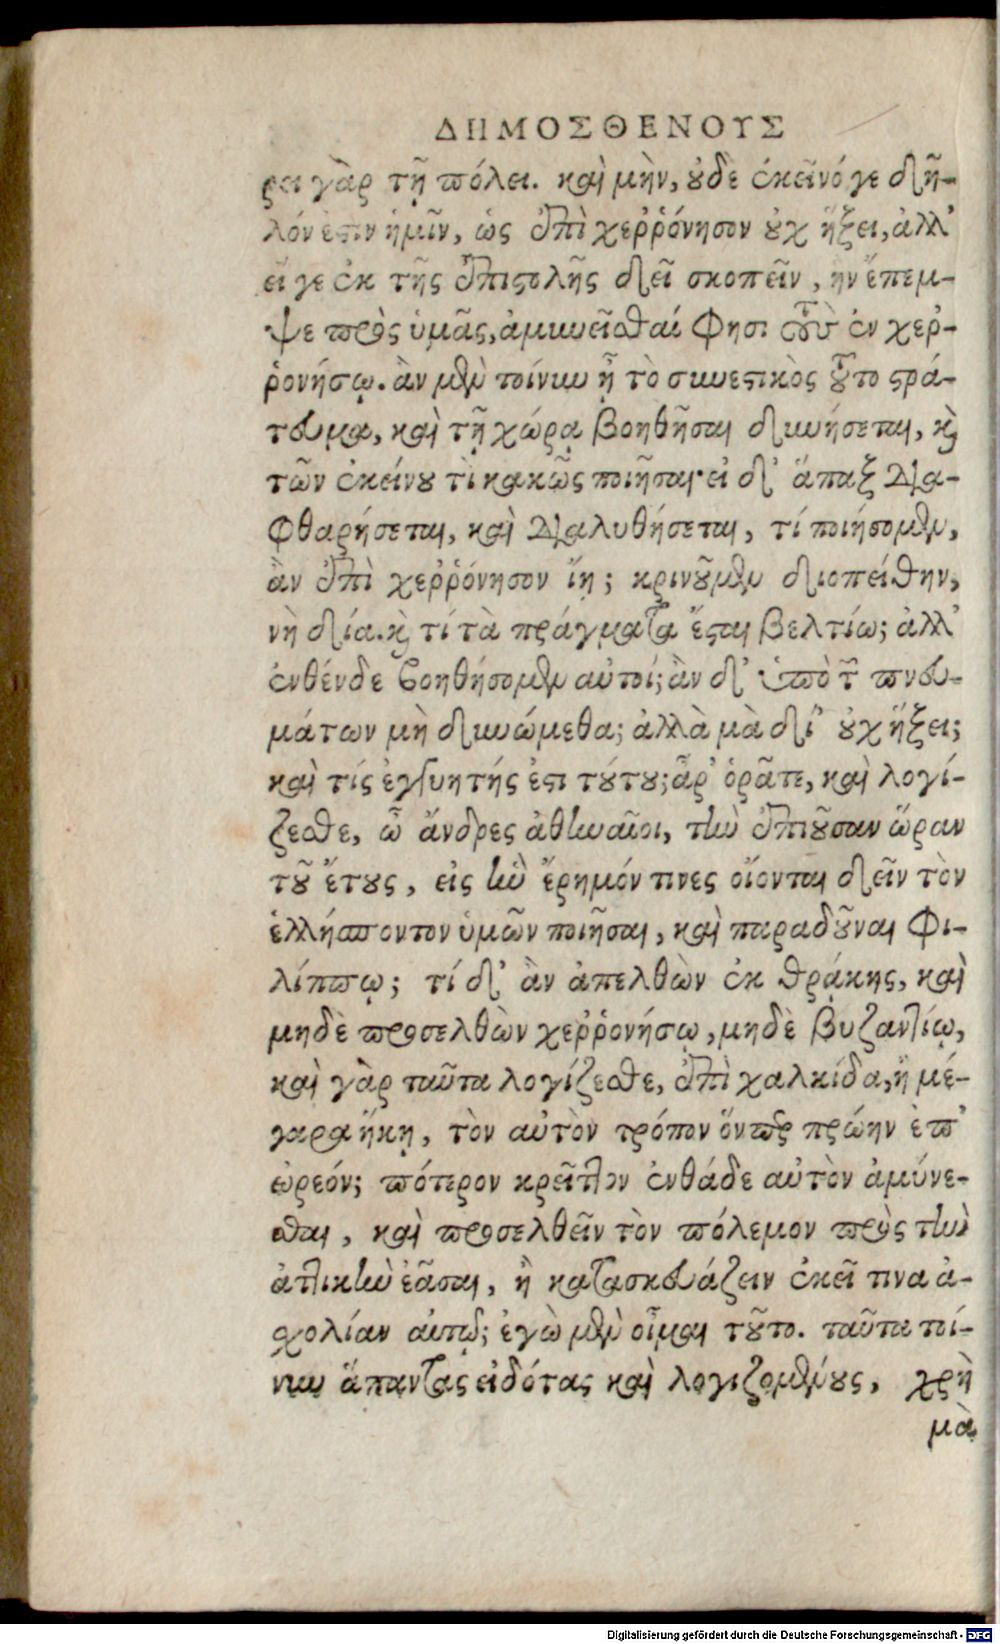 ΔΗΜΟΣΘΕΝΟΥΣ
ρει γὰρ τῇ πόλει. καὶ μὴν, οὐδὲ ἐκεῖνό γε δῆ-
λόν ἐστιν ἡμῖν, ὡς ἐπὶ χεῤῥόνησον οὐχ ἥξει, ἀλλ'
εἴ γε ἐκ τῆς ἐπιστολῆς δεῖ σκοπεῖν, ἣν ἔπεμ-
ψε πρὸς ὑμᾶς, ἀμυνεῖσθαί φησι τοὺς ἐν χεῤ-
ῥονήσῳ. ἂν μὲν τοίνυν ᾖ τὸ συνεστικὸς τοῦτο στρά-
τευμα, καὶ τῇ χώρᾳ βοηθῆσαι δυνήσεται, καὶ
τῶν ἐκείνου τὶ κακῶς ποιῆσαι· εἰ δ' ἅπαξ δια-
φθαρήσεται, καὶ διαλυθήσεται, τί ποιήσομεν,
ἂν ἐπὶ χεῤῥόνησον ἴῃ; κρινοῦμεν διοπείθην,
νὴ δία. καὶ τί τὰ πράγματα ἔσται βελτίω; ἀλλ'
ἐνθένδε βοηθήσομεν αὐτοί; ἂν δ' ὑπὸ τῶν πνευ-
μάτων μὴ δυνώμεθα; ἀλλὰ μὰ δί' οὐχ ἥξει;
καὶ τίς ἐγγυητής ἐστι τούτου; ἆρ' ὁρᾶτε, καὶ λογί-
ζεσθε, ὦ ἄνδρες ἀθηναῖοι, τὴν ἐπιοῦσαν ὥραν
τοῦ ἔτους, εἰς ἣν ἔρημόν τινες οἴονται δεῖν τὸν
ἑλλήσποντον ὑμῶν ποιῆσαι, καὶ παραδοῦναι Φι-
λίππῳ; τί δ' ἂν ἀπελθὼν ἐκ θρᾴκης, καὶ
μηδὲ προσελθὼν χεῤῥονήσῳ, μηδὲ βυζαντίῳ,
καὶ γὰρ ταῦτα λογίζεσθε, ἐπὶ χαλκίδα, ἢ μέ-
γαρα ἥκῃ, τὸν αὐτὸν τρόπον ὅνπερ πρώην ἐπ'
ὠρεόν; πότερον κρεῖττον ἐνθάδε αὐτὸν ἀμύνε-
σθαι, καὶ προσελθεῖν τὸν πόλεμον πρὸς τὴν
ἀττικὴν ἐᾶσαι, ἢ κατασκευάζειν ἐκεῖ τινα ἀ-
σχολίαν αὐτῷ; ἐγὼ μὲν οἶμαι τοῦτο. ταῦτα τοί-
νυν ἅπαντας εἰδότας καὶ λογιζομένους, χρὴ
μὰ
Digitalisierung gefördert durch die Deutsche Forschungsgemeinschaft - DFG